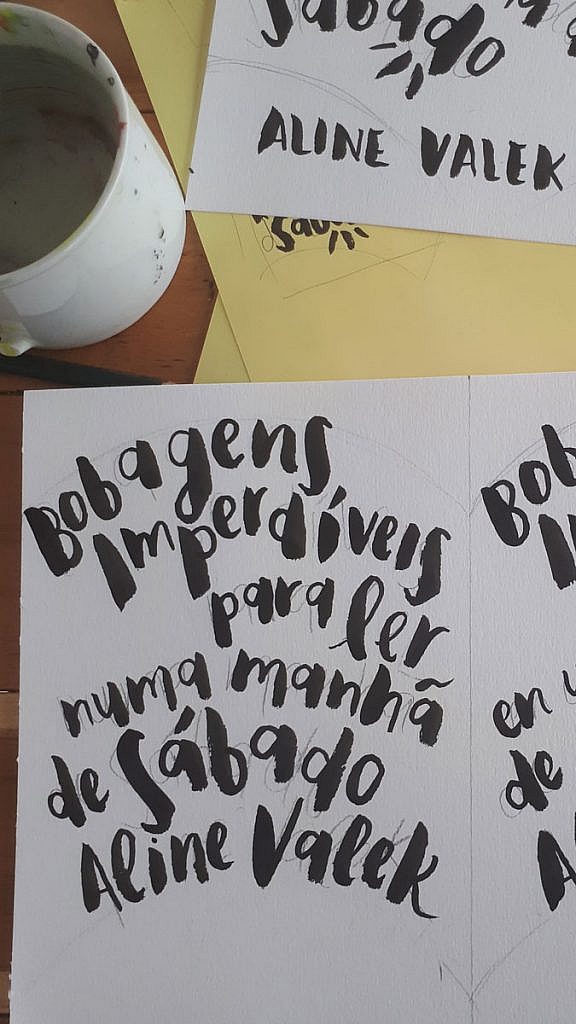 Sábado
ALINE VALEK
Bobagens
Imperdíveis
para ler
numa manhã
de Sábado
Aline Valek
Bob
en
de
A